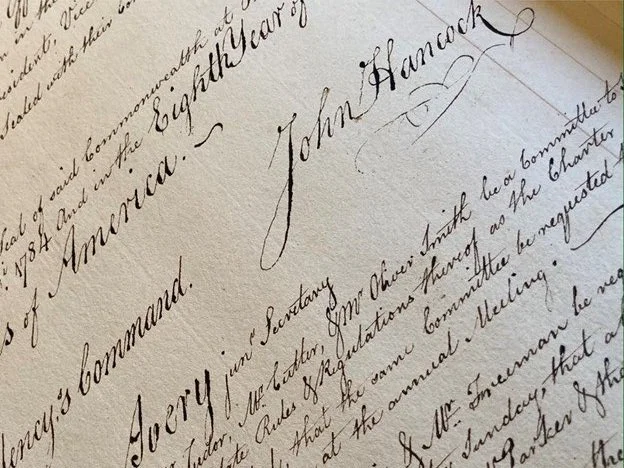 in the
esident. Vice
Sealed with their
Seal of said Commonwealth at
1784 And in the Eighth Year of
s of America.
John Hancock
lency's Command.
Avery junr Secretary
Tudor, Mr. Cutler, & Mr. Oliver Smith be a Committee to
Rules & Regulations thereof as the Charter
that the same Committee be requested
at the annual Meeting.
& Mr. Freeman be req
Sunday, that a
Parker & tha
the